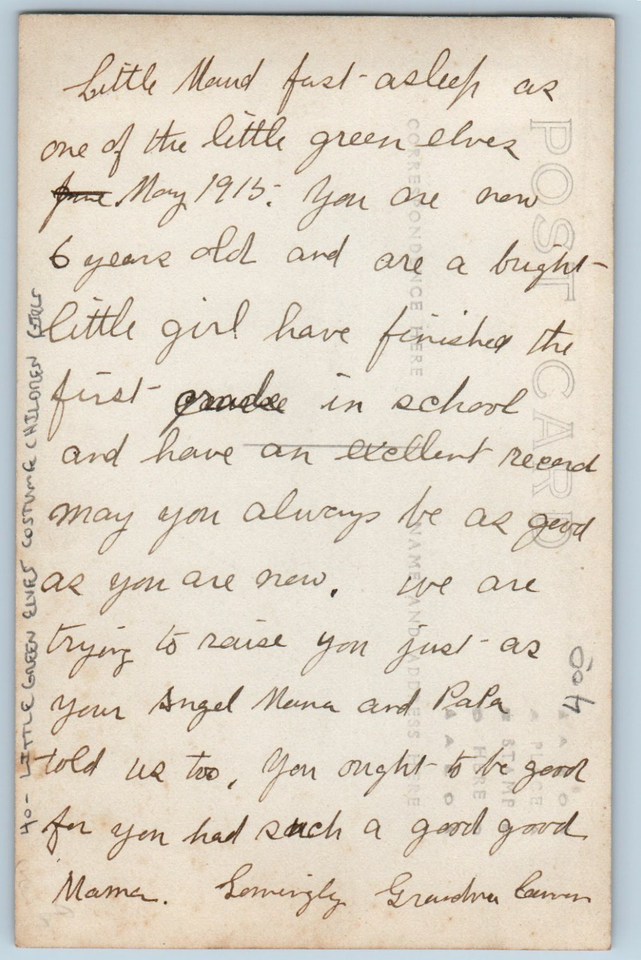 Little Maud fast asleep as
one of the little green elves
June May 1915. You are now
6 years old and are a bright
little girl have finished the
first grade in school
and have an excellent record
may you always be as good
as you are now. we are
trying to raise you just as
your Angel Mama and PaPa
told us too, You ought to be good
for you had such a good good
Mama. Lovingly Grandma
POST CARD
CORRESPONDENCE HERE
NAME AND ADDRESS HERE
PLACE
STAMP
HERE
40- LITTLE GREEN ELVES COSTUME CHILDREN GIRLS
400